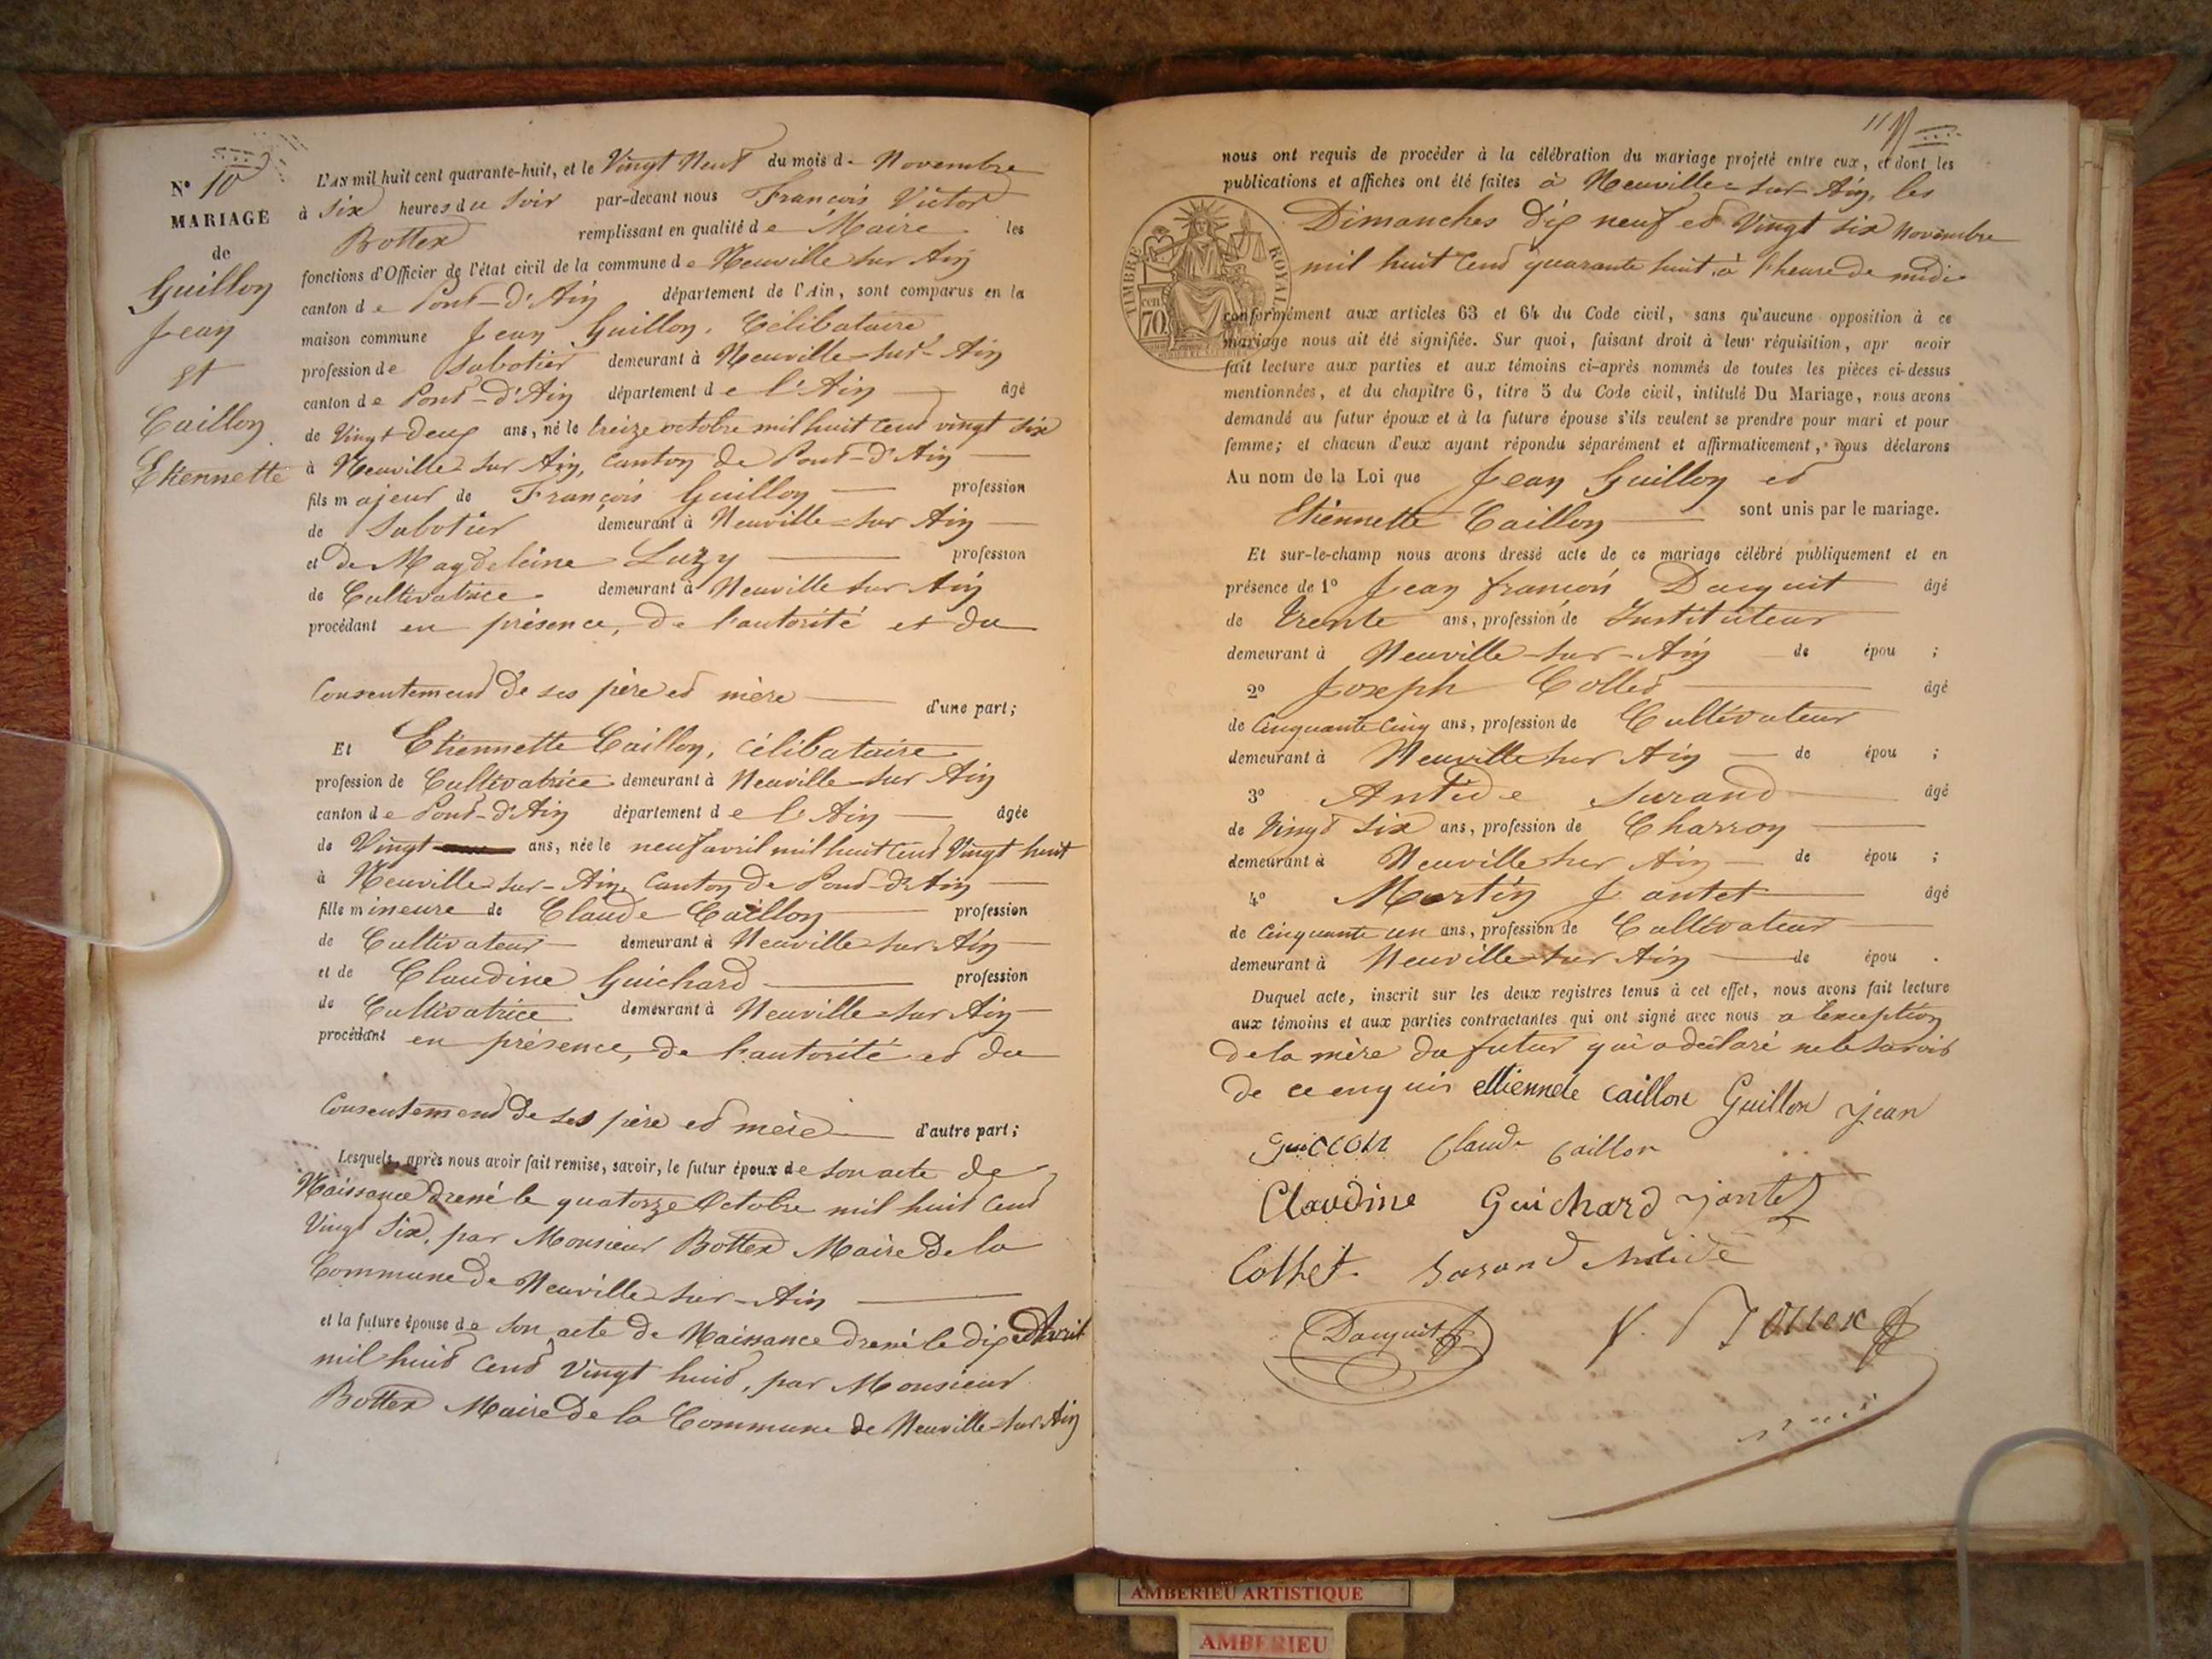 N° 10
MARIAGE
de
Guillon
Jean
et
Caillon
Etiennette
L'AN mil huit cent quarante-huit, et le Vingt Neuf du mois de Novembre
à Six heures du Soir par-devant nous François Victor
Bottex remplissant en qualité de Maire les
fonctions d'Officier de l'état civil de la commune de Neuville sur Ain
canton de Pont-d'Ain département de l'Ain, sont comparus en la
maison commune Jean Guillon, Célibataire
profession de Sabotier demeurant à Neuville-sur-Ain
canton de Pont-d'Ain département de l'Ain âgé
de Vingt-deux ans, né le treize octobre mil huit cent vingt six
à Neuville sur Ain, canton de Pont-d'Ain
fils majeur de François Guillon profession
de Sabotier demeurant à Neuville-sur Ain
et de Magdeleine Luzy profession
de Cultivatrice demeurant à Neuville sur Ain
procédant en présence, de l'autorité et du
Consentement de ses père et mère d'une part;
Et Etiennette Caillon, célibataire
profession de Cultivatrice demeurant à Neuville-sur Ain
canton de Pont-d'Ain département de l'Ain âgée
de Vingt ans, née le neuf avril mil huit cent Vingt huit
à Neuville-sur-Ain, Canton de Pont-d'Ain
fille mineure de Claude Caillon profession
de Cultivateur demeurant à Neuville sur Ain
et de Claudine Guichard profession
de Cultivatrice demeurant à Neuville-sur Ain
procédant en présence, de l'autorité et du
Consentement de ses père et mère d'autre part;
Lesquels, après nous avoir fait remise, savoir, le futur époux de son acte de
Naissance dressé le quatorze Octobre mil huit cent
Vingt Six, par Monsieur Bottex Maire de la
Commune de Neuville-sur-Ain
et la future épouse de son acte de Naissance dressé le dix Avril
mil huit Cent Vingt huit, par Monsieur
Bottex Maire de la Commune de Neuville-sur Ain
11
nous ont requis de procéder à la célébration du mariage projeté entre eux, et dont les
publications et affiches ont été faites à Neuville-sur-Ain, les
Dimanches dix neuf et Vingt six Novembre
mil huit Cent quarante huit à l'heure de midi
TIMBRE ROYAL
cen
70
conformément aux articles 63 et 64 du Code civil, sans qu'aucune opposition à ce
mariage nous ait été signifiée. Sur quoi, faisant droit à leur réquisition, apr avoir
fait lecture aux parties et aux témoins ci-après nommés de toutes les pièces ci-dessus
mentionnées, et du chapitre 6, titre 5 du Code civil, intitulé Du Mariage, nous avons
demandé au futur époux et à la future épouse s'ils veulent se prendre pour mari et pour
femme; et chacun d'eux ayant répondu séparément et affirmativement, nous déclarons
Au nom de la Loi que Jean Guillon et
Etiennette Caillon sont unis par le mariage.
Et sur-le-champ nous avons dressé acte de ce mariage célébré publiquement et en
présence de 1° Jean françois Dacquit âgé
de Trente ans, profession de Instituteur
demeurant à Neuville-sur-Ain de épou ;
2° Joseph Collet âgé
de Cinquante Cinq ans, profession de Cultivateur
demeurant à Neuville sur Ain de épou ;
3° Antide Surand âgé
de Vingt Six ans, profession de Charron
demeurant à Neuville sur Ain de épou ;
4° Martin Jantet âgé
de Cinquante un ans, profession de Cultivateur
demeurant à Neuville sur Ain de épou .
Duquel acte, inscrit sur les deux registres tenus à cet effet, nous avons fait lecture
aux témoins et aux parties contractantes qui ont signé avec nous a l'exception
de la mère du futur qui a déclaré ne le savoir
de ce enquis ettiennete caillon Guillon jean
Guillon Claude Caillon
Claudine Guichard jantet
Collet Surand Antide
Dacquit V. Bottex
AMBERIEU ARTISTIQUE
AMBERIEU